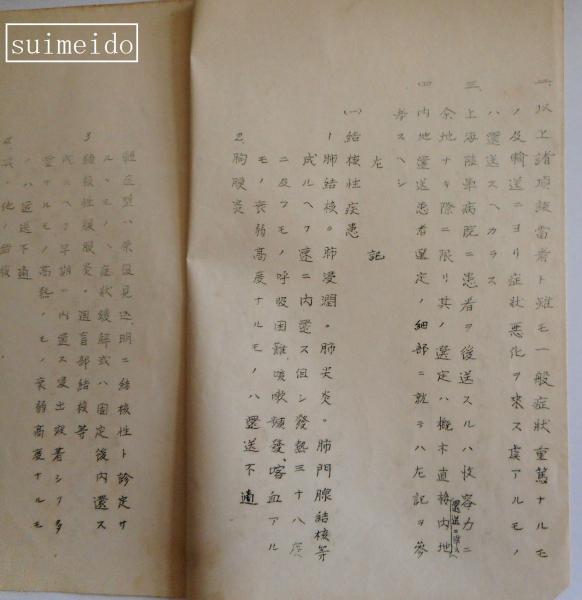 suimeido
二、以上諸項該當者ト雖モ一般症狀重篤ナルモ
ノ及輸送ニヨリ症狀悪化ヲ来ス虞アルモノ
ハ還送スヘカラス
三、上海陸軍病院ニ患者ヲ後送スルハ收容力ニ
余地ナキ際ニ限リ其ノ選定ハ概ネ直接内地
還送ニ準ス
四、内地還送患者選定ノ細部ニ就テハ左記ヲ參
考スヘシ
左記
(一)結核性疾患
1.肺結核。肺浸潤。肺尖炎。肺門腺結核等
成ルヘク速ニ内還ス但シ發熱三十八度
ニ及フモノ呼吸困難咳嗽頻發、喀血アル
モノ衰弱高度ナルモノハ還送不適
2.胸膜炎
ルモノハ症狀緩解或ハ固定後内還ス
3.結核性腹膜炎。廻盲部結核等
成ヘク早期ニ内還ス滲出液著シク多
量ナルモノ高熱ノモノ衰弱高度ナルモ
ノハ還送不適
4.其ノ他ノ結核